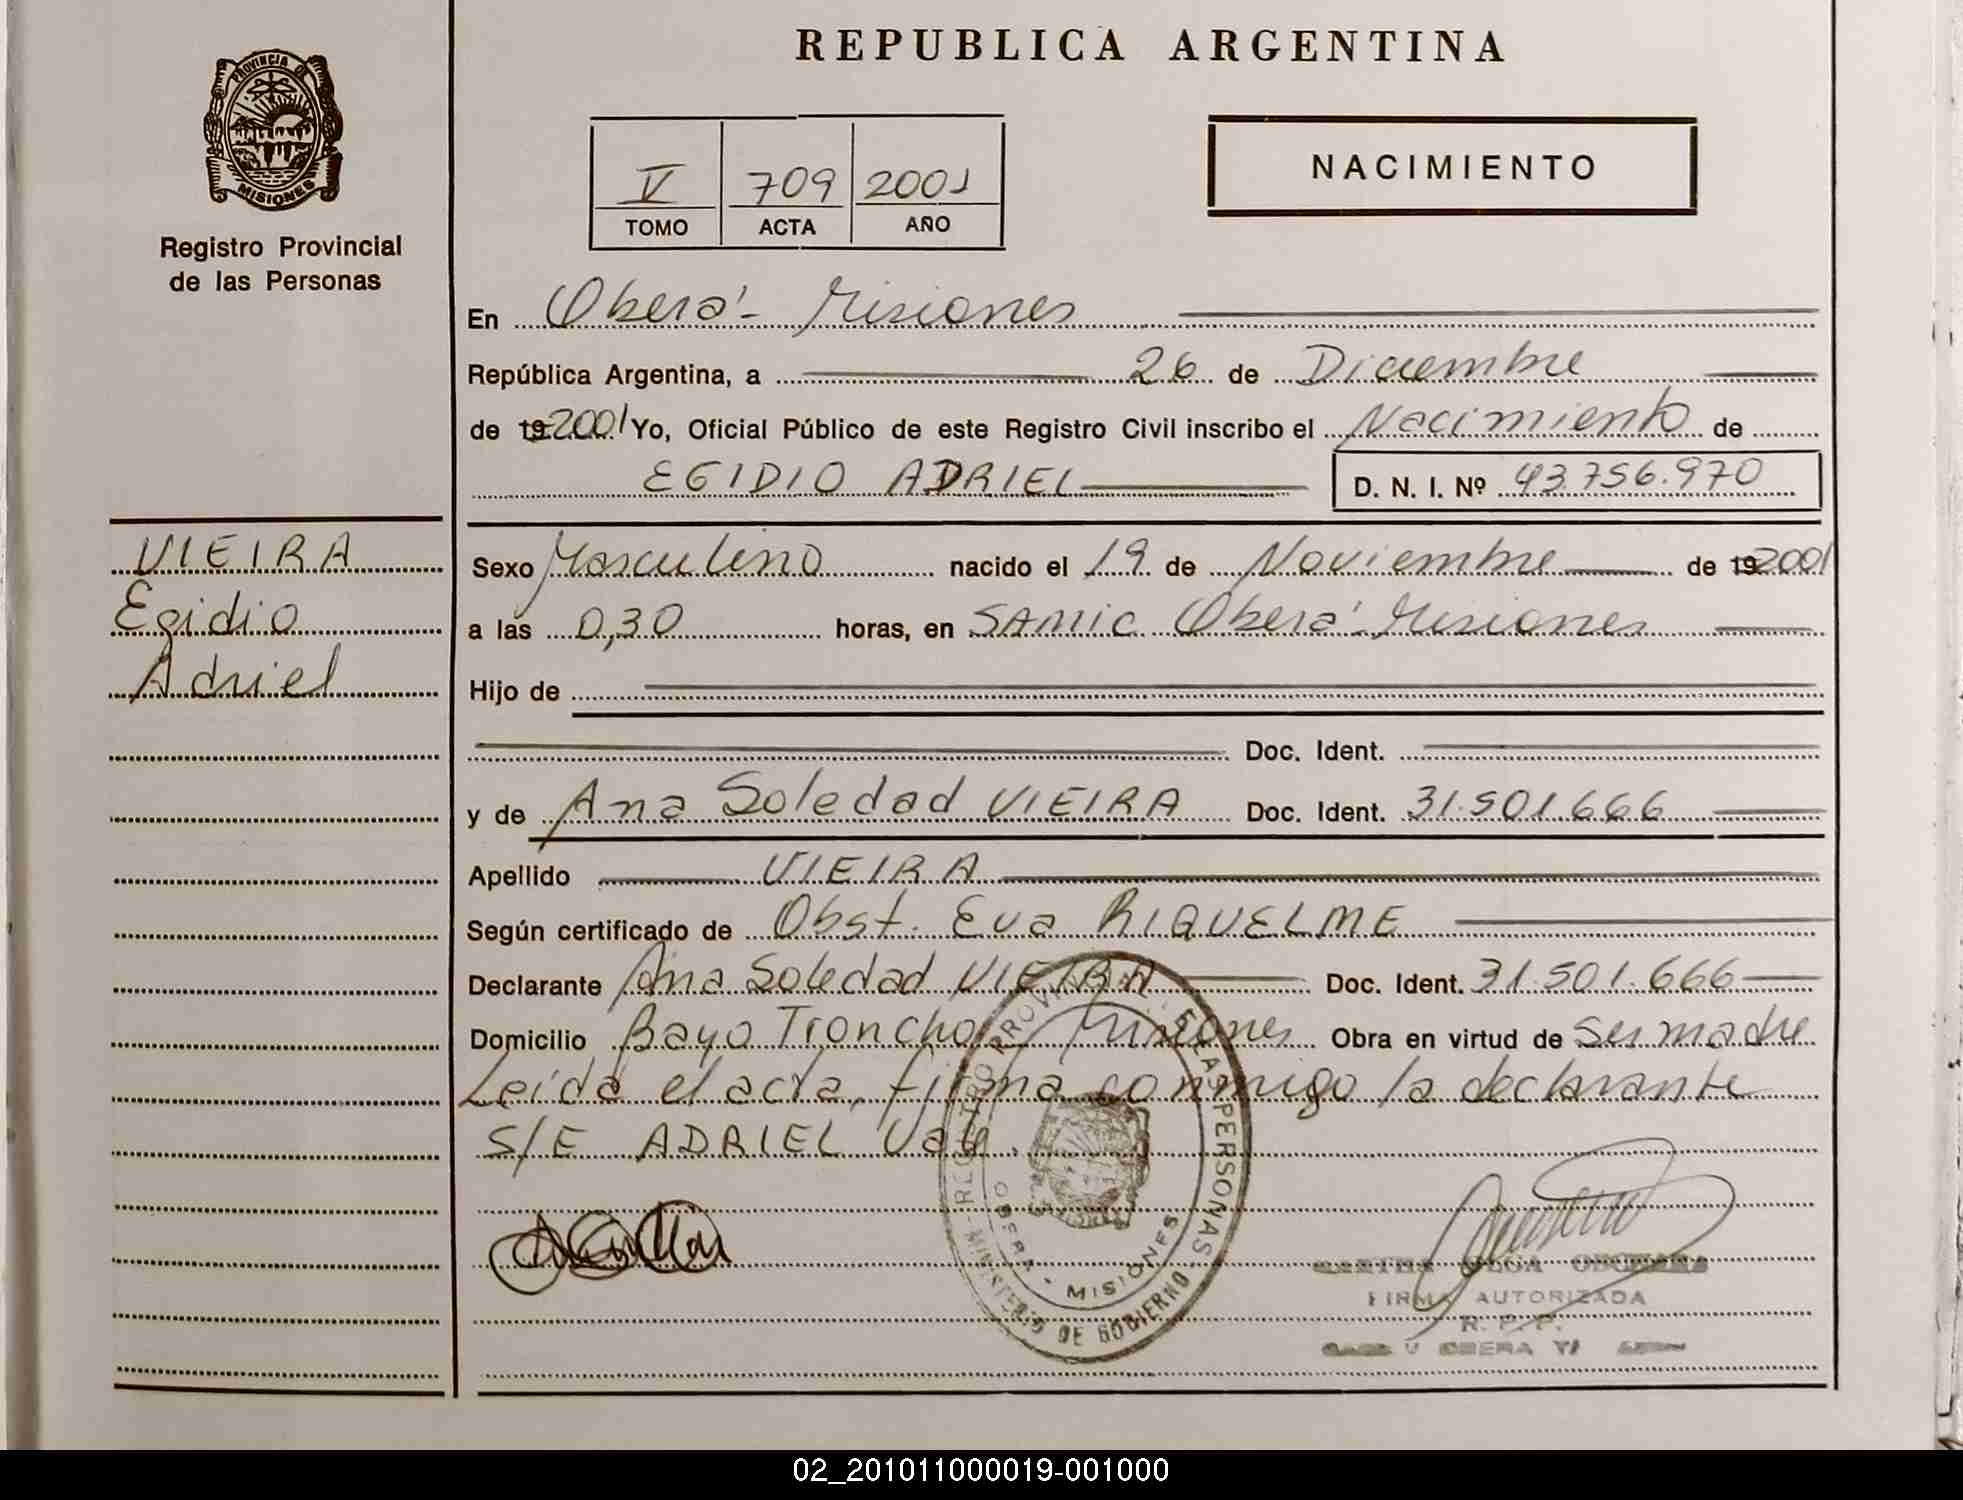 REPUBLICA ARGENTINA
PROVINCIA DE
MISIONES
Registro Provincial
de las Personas
V 709 2001
TOMO ACTA AÑO
NACIMIENTO
En Oberá - Misiones
República Argentina, a 26 de Diciembre
de 19 2001 Yo, Oficial Público de este Registro Civil inscribo el Nacimiento de
EGIDIO ADRIEL D. N. I. Nº 43.756.970
VIEIRA
Egidio
Adriel
Sexo Masculino nacido el 19 de Noviembre de 19 2001
a las 0,30 horas, en SAMIC Oberá - Misiones
Hijo de
Doc. Ident.
y de Ana Soledad VIEIRA Doc. Ident. 31.501.666
Apellido VIEIRA
Según certificado de Obst. Eva RIQUELME
Declarante Ana Soledad VIEIRA Doc. Ident. 31.501.666
Domicilio Bayo Troncho Misiones Obra en virtud de ser madre
Leída el acta, firma conmigo la declarante
S/E ADRIEL Vale.
REGISTRO PROVINCIAL DE LAS PERSONAS
MINISTERIO DE GOBIERNO
OBERA - MISIONES
OLGA
FIRMA AUTORIZADA
R. P. P.
OBERA
02_201011000019-001000